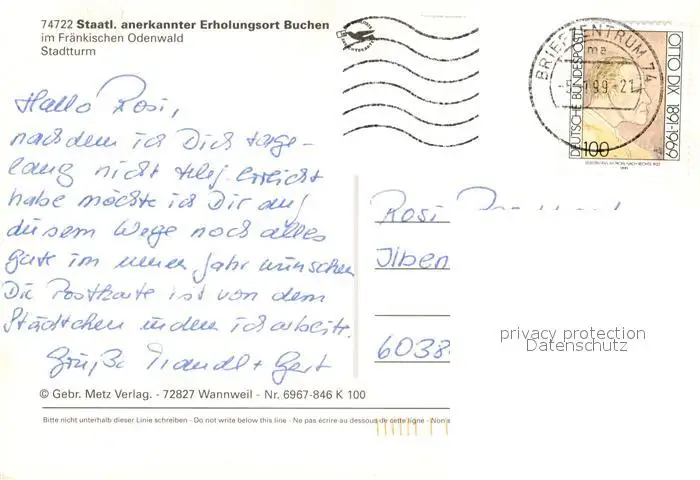 74722 Staatl. anerkannter Erholungsort Buchen
im Fränkischen Odenwald
Stadtturm
Hallo Rosi,
nachdem ich Dich tage-
lang nicht telef. erreicht
habe möchte ich Dir auf
diesem Wege noch alles
gute im neuen Jahr wünschen
Die Postkarte ist von dem
Städtchen indem ich arbeite.
Grüße + Gert
© Gebr. Metz Verlag. - 72827 Wannweil - Nr. 6967-846 K 100
Bitte nicht unterhalb dieser Linie schreiben - Do not write below this line - Ne pas écrire au dessous de cette ligne - Non s
BRIEFZENTRUM 74
ma
-5.-1.99-21
DEUTSCHE BUNDESPOST
OTTO DIX 1891-1969
100
Rosi
Ilben
6038
privacy protection
Datenschutz